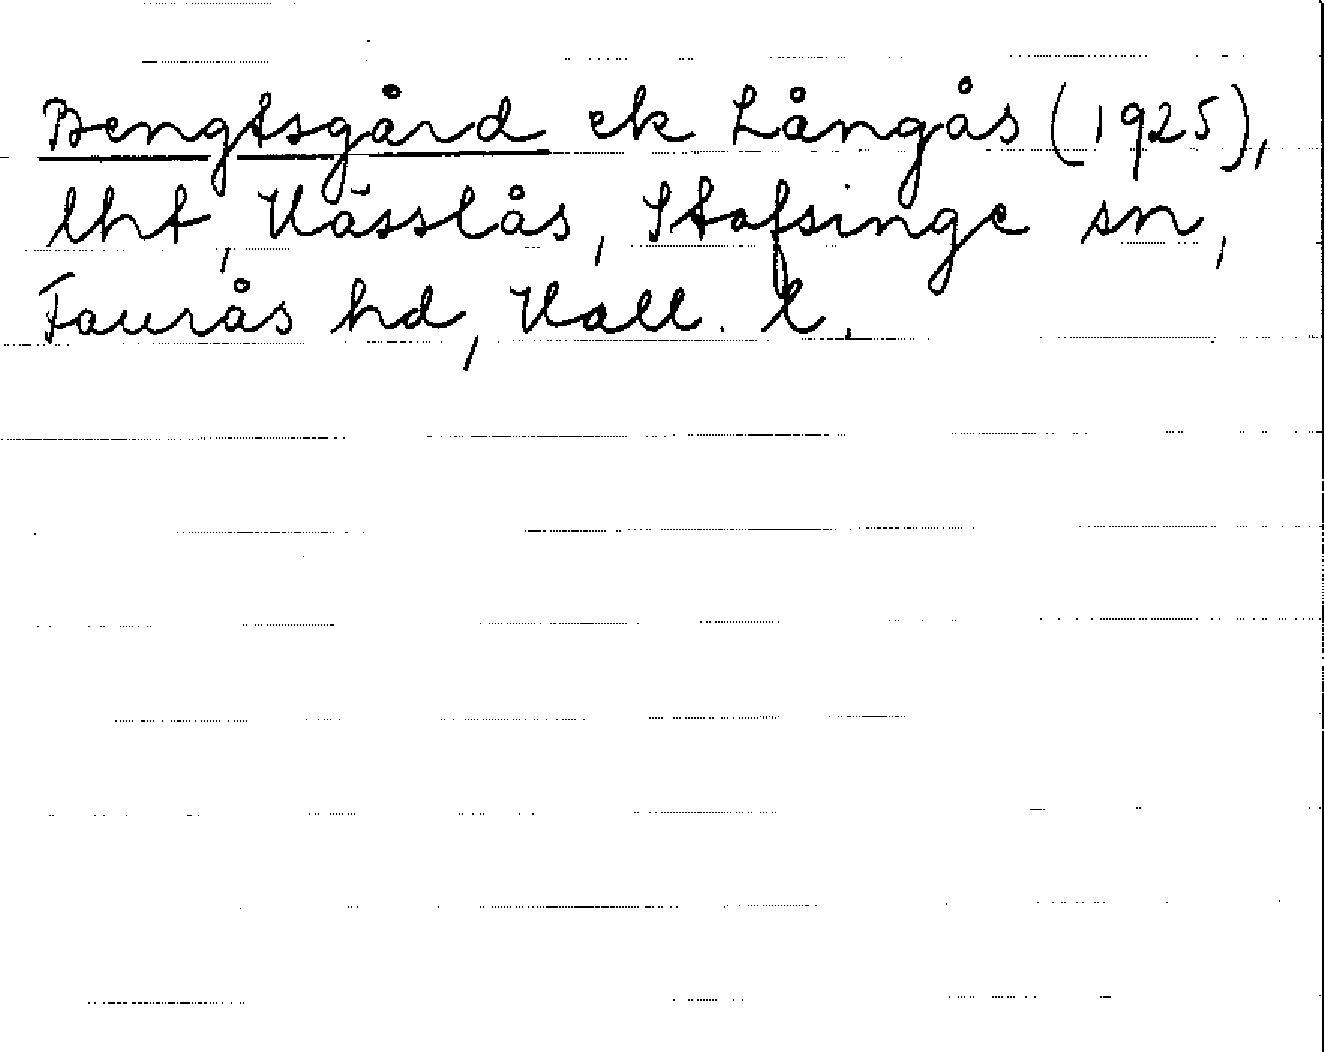 Bengtsgård ek Långås (1925),
lht, Hässlås, Stafsinge sn,
Faurås hd, Hall. l.